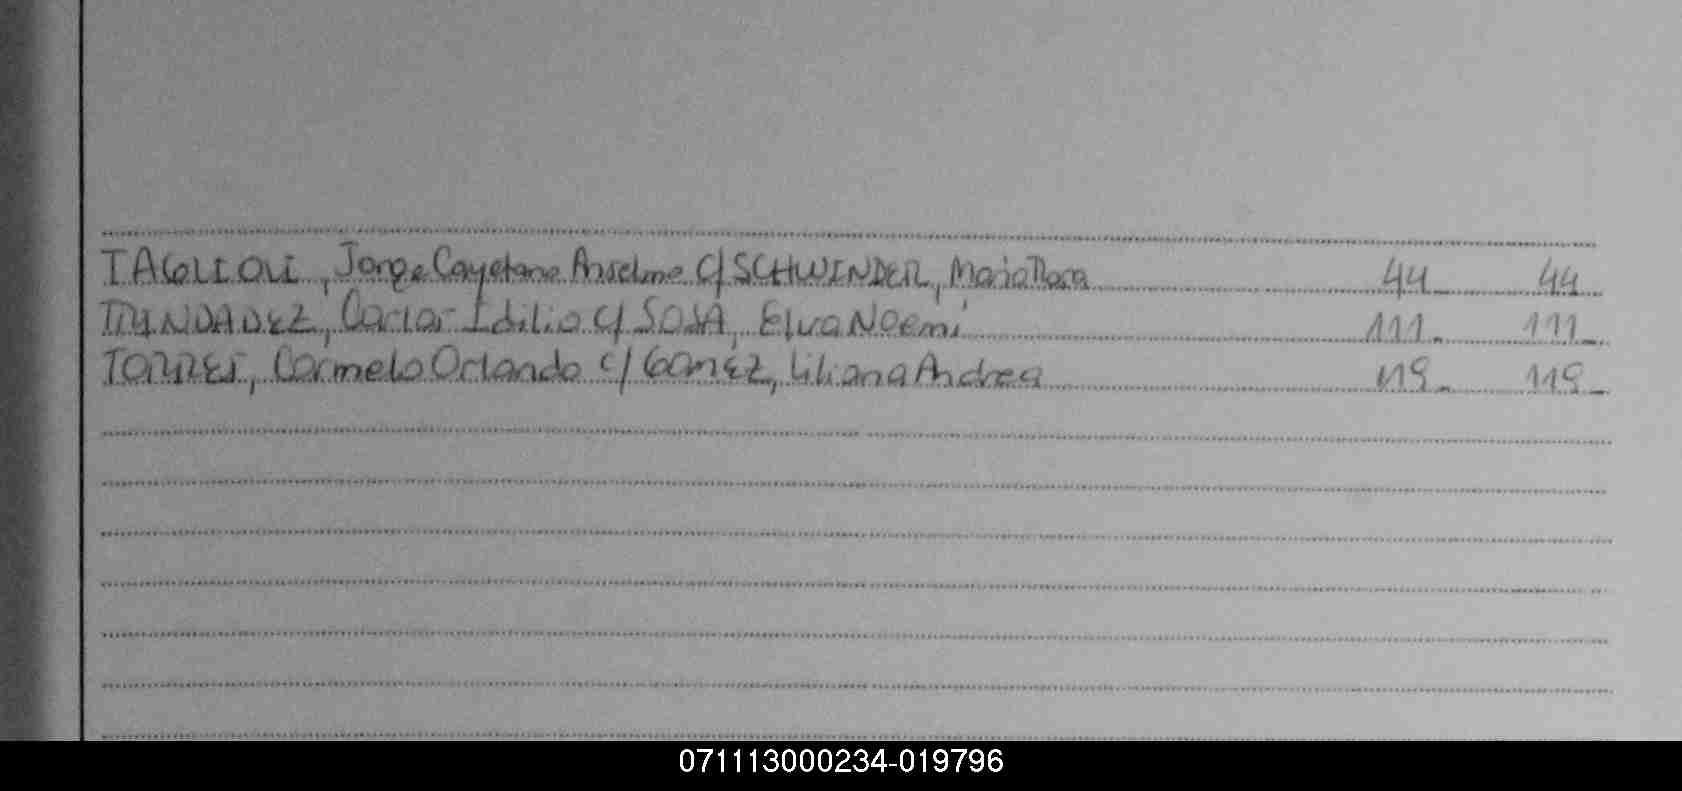 TAGLIOLI, Jorge Cayetano Anselmo c/ SCHWINDER, Maria Rosa 44 44
Carlos Idilio c/ SOSA, Elva Noemí 111 111
TORRES, Carmelo Orlando c/ GOMEZ, Liliana Andrea 119 119
071113000234-019796